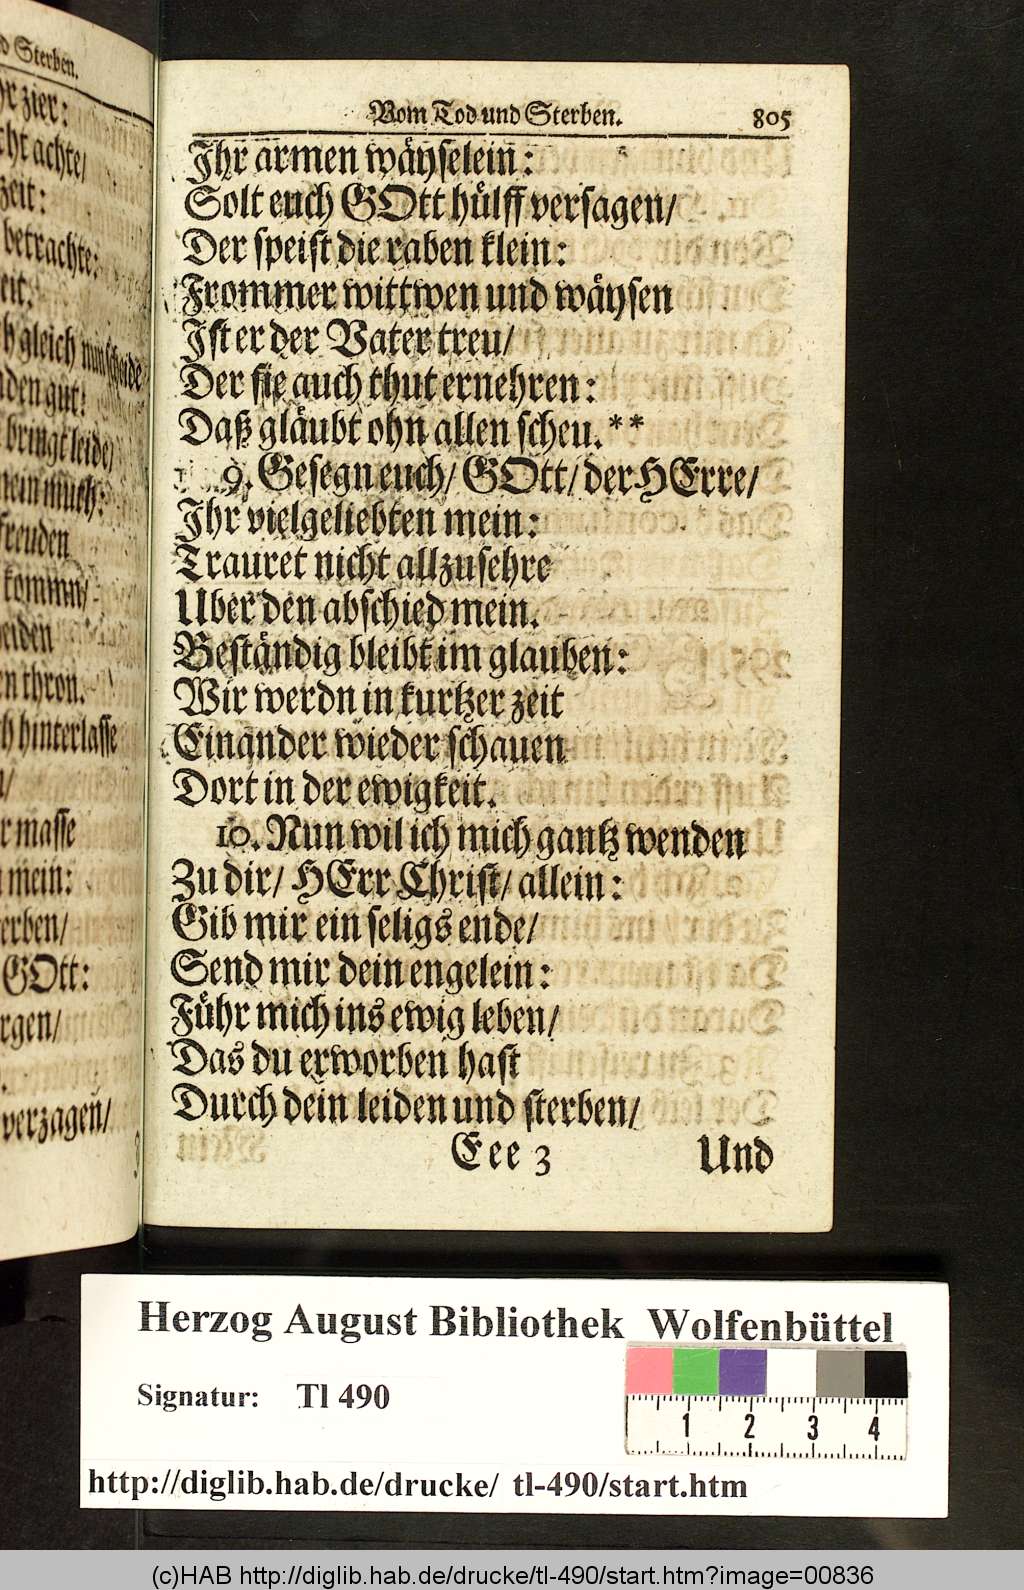 d Sterben.
hr zier:
cht achte/
zeit:
betrachte:
eit.
b gleich nun scheide
nden gut:
bringt leide/
mein muth:
freuden
kommn/
eiden
n thron.
ch hinterlasse
r masse
mein:
erben/
GOtt:
rgen/
verzagen/
Vom Tod und Sterben. 805
Ihr armen wäyselein:
Solt euch GOtt hülff versagen/
Der speist die raben klein:
Frommer wittwen und wäysen
Ist er der Vater treu/
Der sie auch thut ernehren:
Daß gläubt ohn allen scheu.**
9. Gesegn euch/ GOtt/ der HErre/
Ihr vielgeliebten mein:
Trauret nicht allzusehre
Uber den abschied mein.
Beständig bleibt im glauben:
Wir werdn in kurtzer zeit
Einander wieder schauen
Dort in der ewigkeit.
10. Nun wil ich mich gantz wenden
Zu dir/ HErr Christ/ allein:
Gib mir ein seligs ende/
Send mir dein engelein:
Führ mich ins ewig leben/
Das du erworben hast
Durch dein leiden und sterben/
Eee 3 Und
Herzog August Bibliothek Wolfenbüttel
Signatur: Tl 490
1 2 3 4
http://diglib.hab.de/drucke/ tl-490/start.htm
(c)HAB http://diglib.hab.de/drucke/tl-490/start.htm?image=00836